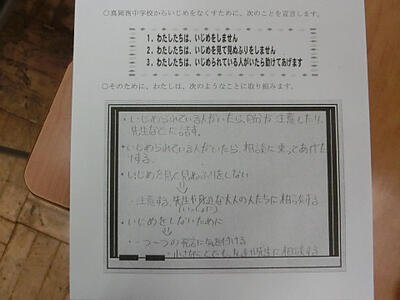 ○真岡西中学校からいじめをなくすために、次のことを宣言します。
1. わたしたちは、いじめをしません
2. わたしたちは、いじめを見て見ぬふりをしません
3. わたしたちは、いじめられている人がいたら助けてあげます
○そのために、わたしは、次のようなことに取り組みます。
・いじめられている人がいたら、自分が注意したり、
先生などに話す。
・いじめられている人がいたら、相談に乗ってあげた
りする。
・いじめを見て見ぬふりをしない
↓
・注意する、先生や身近な大人の人たちに相談する
・いじめをしないために
↓
・一つ一つの発言に気を付ける
・小さなことでも、先生に相談する